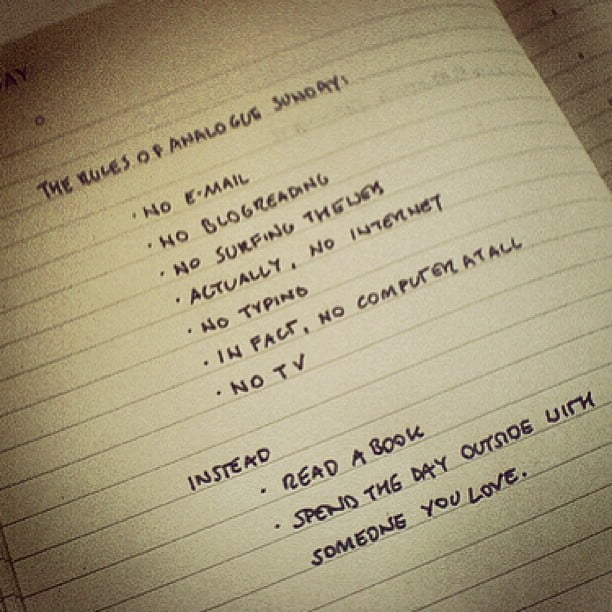 AY
THE RULES OF ANALOGUE SUNDAY:
· NO E-MAIL
· NO BLOGREADING
· NO SURFING THE WEB
· ACTUALLY, NO INTERNET
· NO TYPING
· IN FACT, NO COMPUTER AT ALL
· NO TV
INSTEAD
· READ A BOOK
· SPEND THE DAY OUTSIDE WITH
SOMEONE YOU LOVE.